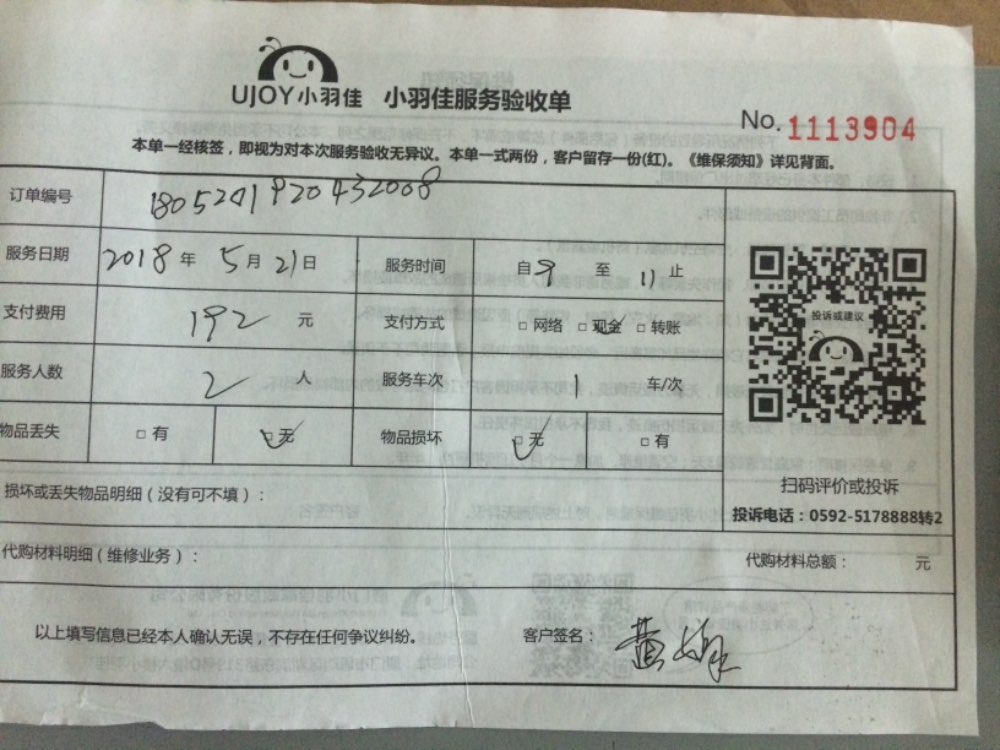 UJOY小羽佳 小羽佳服务验收单
No. 1113904
本单一经核签，即视为对本次服务验收无异议。本单一式两份，客户留存一份(红)。《维保须知》详见背面。
订单编号 180521920432008
服务日期 2018 年 5 月 21 日 服务时间 自 9 至 11 止
支付费用 192 元 支付方式 □ 网络 □ 现金 □ 转账
服务人数 2 人 服务车次 1 车/次
物品丢失 □ 有 □ 无 物品损坏 □ 无 □ 有
投诉或建议
扫码评价或投诉
投诉电话：0592-5178888转2
损坏或丢失物品明细（没有可不填）：
代购材料明细（维修业务）： 代购材料总额： 元
以上填写信息已经本人确认无误，不存在任何争议纠纷。 客户签名： 黄